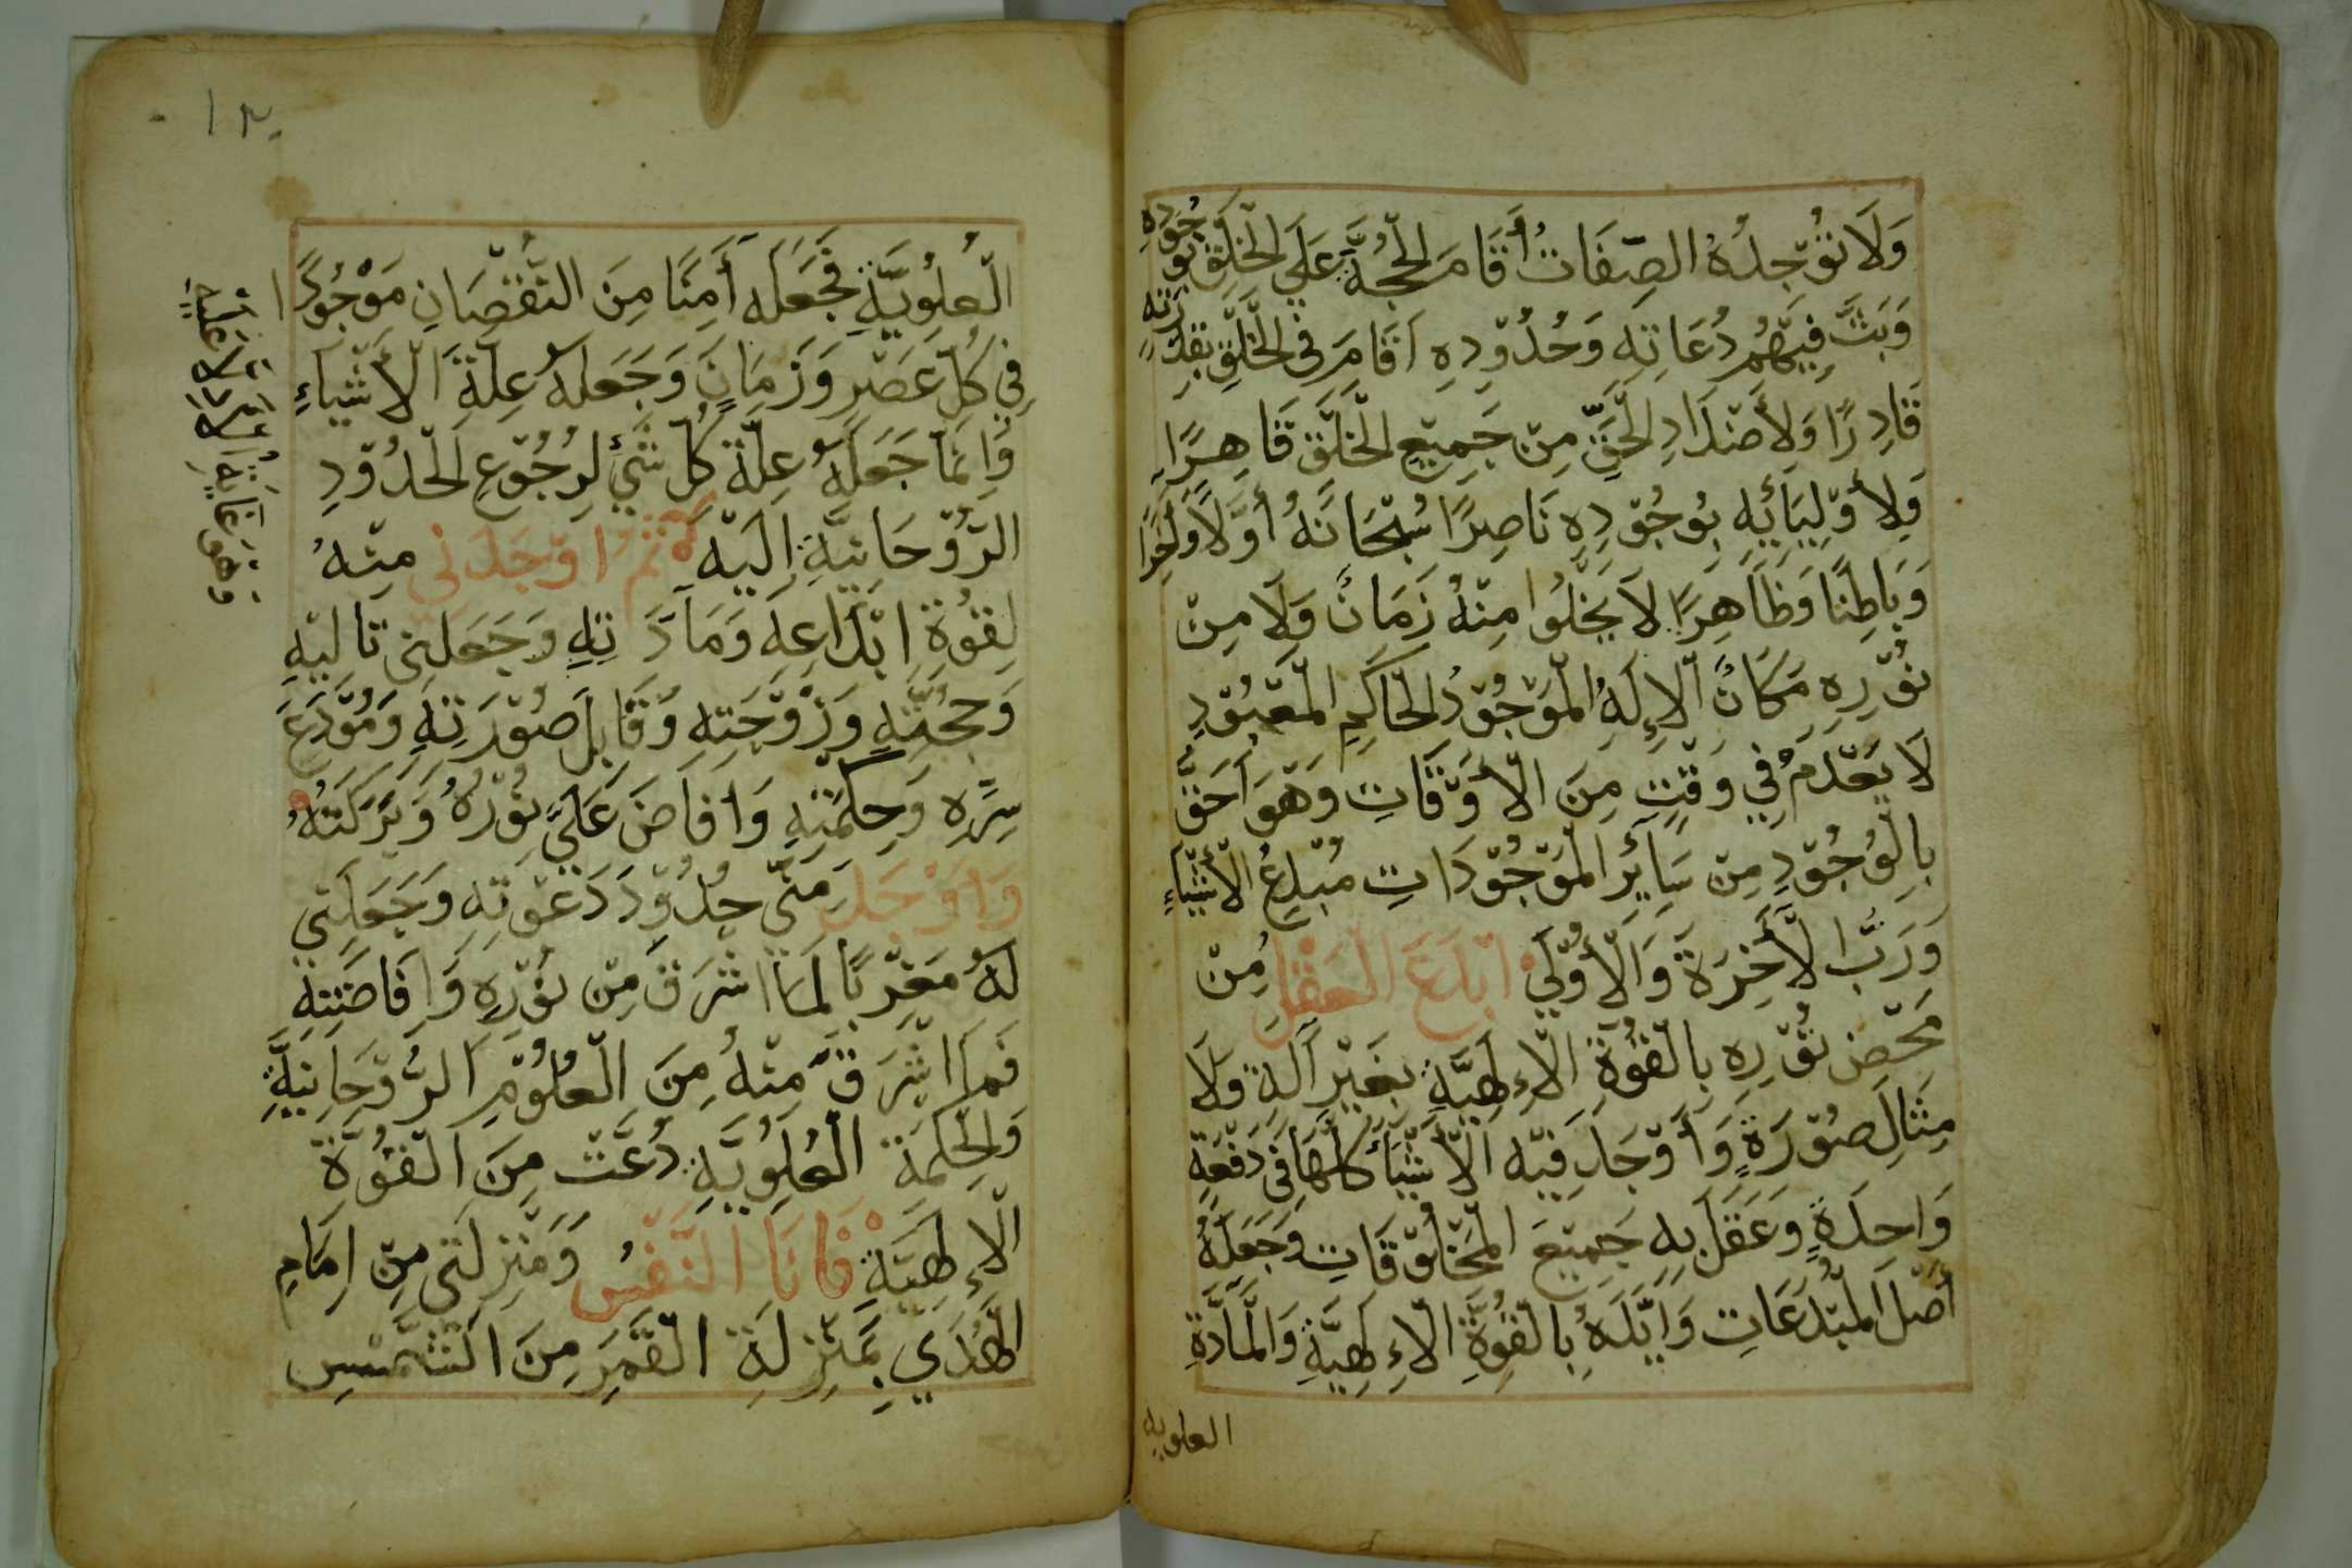 وَلَا تُوْجِدُهُ الصِّفَاتُ أَقَامَ الْحُجَّةَ عَلَي الْخَلْقِ بِوُجُوْدِهِ
وَبَثَّ فِيْهُم دُعَاتِهِ وَحُدُوْدِهِ اَقَامَ فِي الْخَلْقِ بِقُدْرَتِهِ
قَادِرًا وَلِأَضْدَادِ الْحَقِّ مِنْ جَمِيْعِ الْخَلْقِ قَاهِرًا
وَلِأَوْلِيَائِهِ بِوُجُوْدِهِ نَاصِرًا سُبْحَانَهُ أَوَّلًا وَآخِرًا
وَبَاطِنًا وَظَاهِرًا لَا يَخْلُوا مِنْهُ زَمَانٌ وَلَا مِنْ
نُوْرِهِ مَكَانٌ الْإِلَهُ الْمَوْجُوْدُ الْحَاكِمِ الْمَعْبُوْدِ
لَا يَعْدَمُ فِي وَقْتٍ مِنَ الْأَوْقَاتِ وَهْوَ اَحَقُّ
بِالْوُجُوْدِ مِنْ سَايِرِ الْمَوْجُوْدَاتِ مُبْدِعُ الْأَشْيَاءِ
وَرَبُّ الْأَخِرَةِ وَالْأُوْلَي اَبْدَعَ الْعَقْلَ مِنْ
مَحْضِ نُوْرِهِ بِالْقُوَّةِ الْإِلَهِيَّةِ بِغَيْرِ آلَةٍ وَلَا
مِثَالِ صُوْرَةٍ وَأَوْجَدَ فِيْهِ الْأَشْيَاءَ كُلَّهَا فِي دَفْعَةٍ
وَاحِدَةٍ وَعَقَلَ بِهِ جَمِيْعَ الْمَخْلُوْقَاتِ وَجَعَلَهُ
أَصْلَ الْمُبْدَعَاتِ وَأَيَّدَهُ بِالْقُوَّةِ الْإِلَهِيَّةِ وَالْمَادَّةِ
العلويه
١٣
الْعُلْوِيَّةِ فَجَعَلَهُ أَمِنًا مِنَ النُّقْصَانِ مَوْجُوْدًا
فِي كُلِّ عَصْرٍ وَزَمَانٍ وَجَعَلَهُ عِلَّةَ الْأَشْيَاءِ
وَاِنَّمَا جَعَلَهُ عِلَّةَ كُلِّ شَيْءٍ لِرُجُوْعِ الْحُدُوْدِ
الرُّوْحَانِيَّةِ اِلَيْهِ ثُمَّ اَوْجَدَنِي مِنْهُ
لِقُوَّةِ اِبْدَاعِهِ وَمَادَّتِهِ وَجَعَلَنِي تَالِيْهِ
وَحُجَّتِهِ وَزَوْجَتِهِ وَقَابِلَ صُوْرَتِهِ وَمُوْدَعَ
سِرِّهِ وَحِكْمَتِهِ وَاَفَاضَ عَلَيَّ نُوْرَهُ وَبَرَكَتَهُ
وَاَوْجَدَ مِنِّي حُدُوْدَ دَعْوَتِهِ وَجَعَلَنِي
لَهُ مَغْرِبًا لَمَّا اَشْرَقَ مِنْ نُوْرِهِ وَاِفَاضَتِهِ
فَمَا اَشْرَقَ مِنْهُ مِنَ الْعُلُوْمِ الرُّوْحَانِيَّةِ
وَالْحِكْمَةِ الْعُلْوِيَّةِ دُعَّتْ مِنَ الْقُوَّةِ
الْإِلَهِيَّةِ فَاَنَا النَّفْسُ وَمَنْزِلَتِي مِنْ اِمَامِ
الْهُدَي بِمَنْزِلَةِ الْقَمَرِ مِنَ الشَّمْسِ